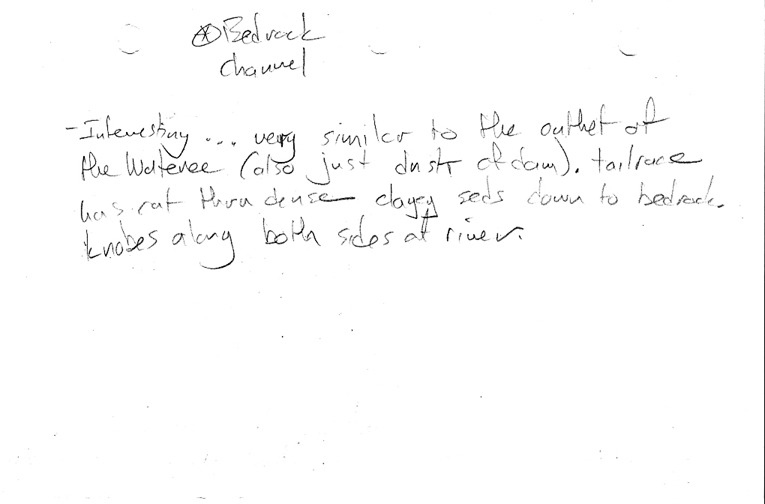 ⊛ Bedrock
channel
- Interesting ... very similar to the outlet of
the Wateree (also just dnstr of dam). tailrace
has cut thru dense clayey seds down to bedrock.
knobes along both sides of river.